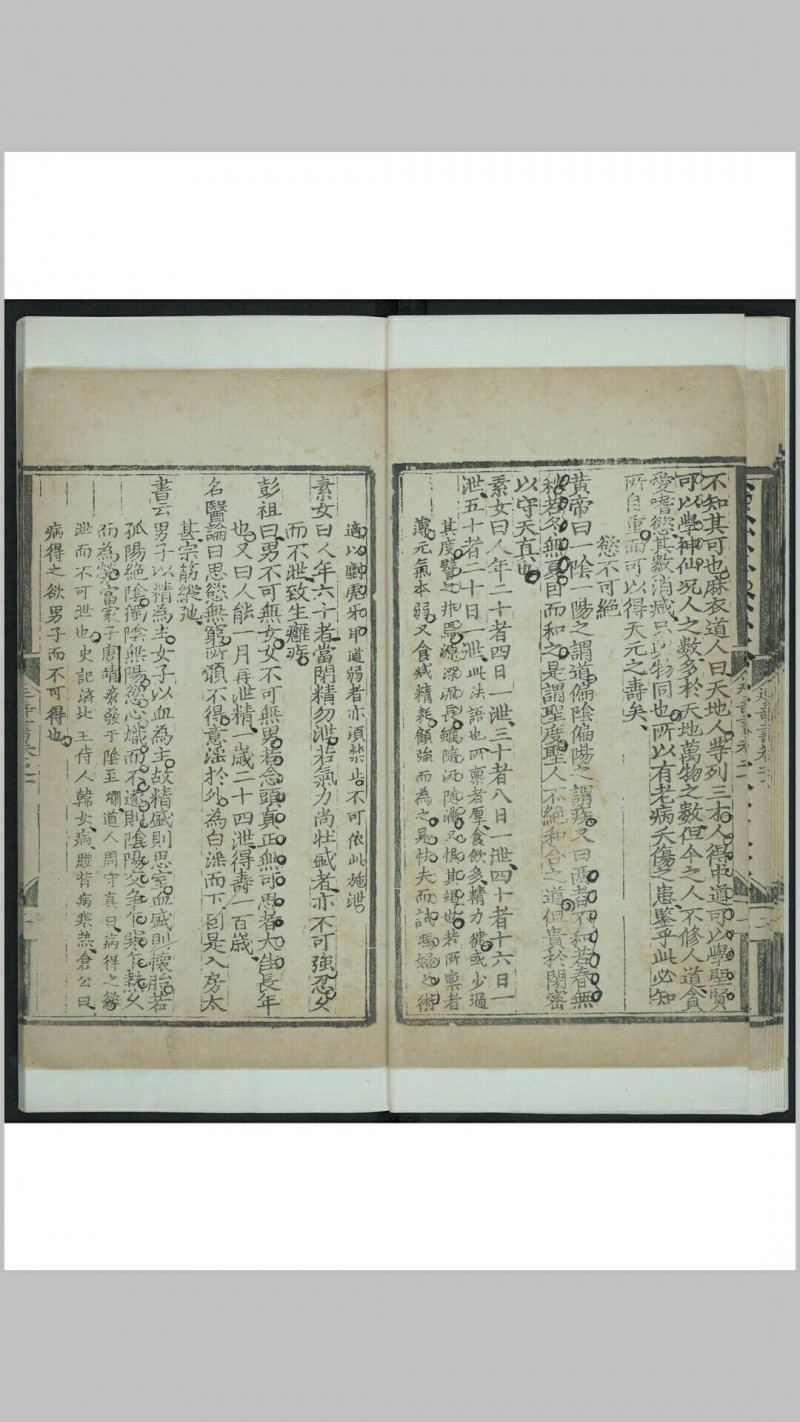 不知其可也麻衣道人曰天地人孚列三才人得中道可以學聖賢
可以學神仙况人之數多於天地萬物之數但今之人不修人道貪
愛嗜慾其數消滅只與物同也所以有老病夭傷之患鑒乎此必知
所自重而可以得天元之壽矣
慾不可絕
黃帝曰一陰一陽之謂道偏陰偏陽之謂疾又曰兩者不和若春無
秋若冬無夏因而和之是謂聖度聖人不絕和合之道但貴於閉密
以守天真也
素女曰人年二十者四日一泄三十者八日一泄四十者十六日一
泄五十者二十日一泄此法語也所禀者厚食飲多精力健或少過
其度譬之井焉源深流長雖隨汲隨滿又懼其竭也若所禀者
萬元氣本弱又食減精耗顧強而為之是怯夫而試馮婦之術
適以劘虎牙耳道弱者亦須禁止不可依此施泄
素女曰人年六十者當閉精勿泄若氣力尚壯盛者亦不可強忍久
而不泄致生癰疾
彭祖曰男不可無女女不可無男若念頭真正無可思者大佳長年
也又曰人能一月再泄精一歲二十四泄得壽二百歲
名醫論曰思慾無窮所願不得意淫於外為白淫而下因是入房太
甚宗筋縱弛
書云男子以精為主女子以血為主故精盛則思室血盛則懷胎若
孤陽絕陰獨陰無陽慾心熾而不遂則陰陽交爭乍寒乍熱久
而為勞富家子唐靖瘡發于陰至爛道人周守真曰病得之慾
泄而不可泄也史記濟北王侍人韓女病腰背痛寒熱倉公曰
病得之欲男子而不可得也